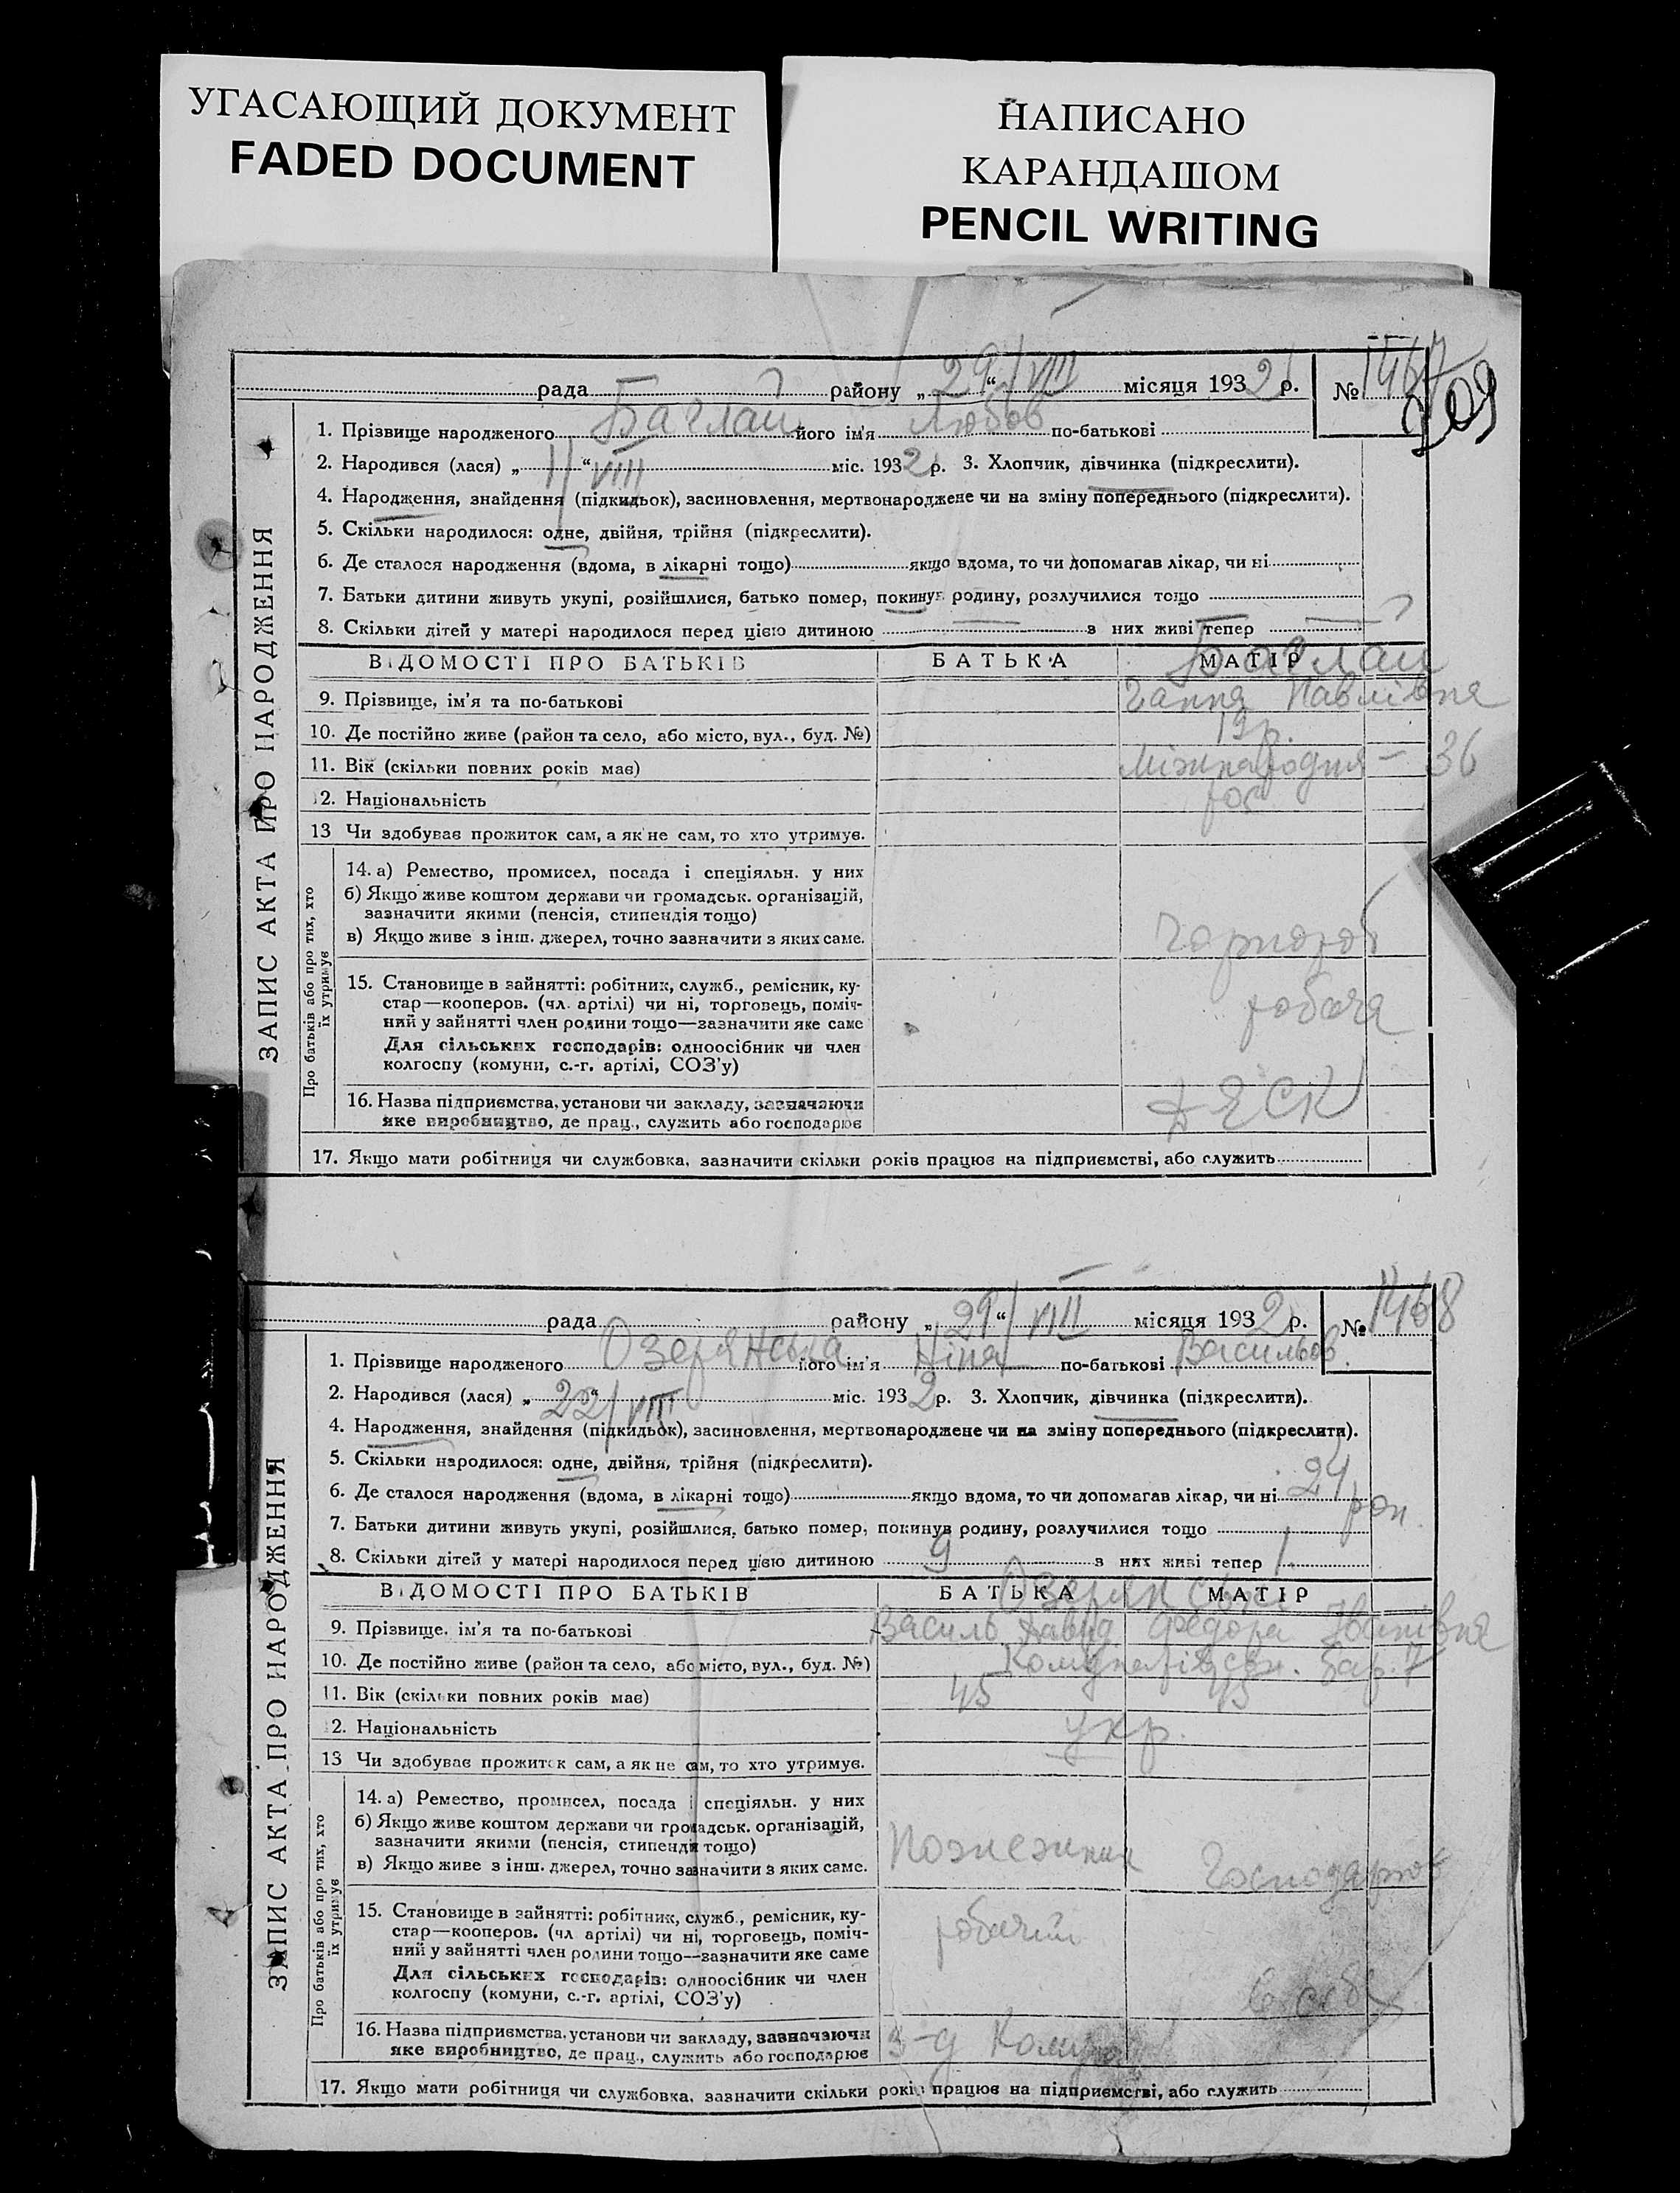 УГАСАЮЩИЙ ДОКУМЕНТ
FADED DOCUMENT
НАПИСАНО
КАРАНДАШОМ
PENCIL WRITING
ЗАПИС АКТА ПРО НАРОДЖЕННЯ
рада району „29“/VIII місяця 1932 р. № 1467
209
1. Прізвище народженого Баглай його ім'я Любов по-батькові
2. Народився (лася) „11“/VIII міс. 1932 р. 3. Хлопчик, дівчинка (підкреслити).
4. Народження, знайдення (підкидьок), засиновлення, мертвонароджене чи на зміну попереднього (підкреслити).
5. Скільки народилося: одне, двійня, трійня (підкреслити).
6. Де сталося народження (вдома, в лікарні тощо) якщо вдома, то чи допомагав лікар, чи ні
7. Батьки дитини живуть укупі, розійшлися, батько помер, покинув родину, розлучилися тощо
8. Скільки дітей у матері народилося перед цією дитиною — з них живі тепер —
ВІДОМОСТІ ПРО БАТЬКІВ БАТЬКА МАТІР
Баглай
9. Прізвище, ім'я та по-батькові Ганна Павлівна
10. Де постійно живе (район та село, або місто, вул., буд. №) 19 р.
11. Вік (скільки повних років має) Міжнародня — 36
12. Національність рос
13 Чи здобуває прожиток сам, а як не сам, то хто утримує.
Про батьків або про тих, хто їх утримує
14. а) Ремество, промисел, посада і спеціяльн. у них
б) Якщо живе коштом держави чи громадськ. організацій,
зазначити якими (пенсія, стипендія тощо)
в) Якщо живе з інш. джерел, точно зазначити з яких саме.
Чорнороб
15. Становище в зайнятті: робітник, служб., ремісник, ку-
стар—кооперов. (чл. артілі) чи ні, торговець, поміч-
ний у зайнятті член родини тощо—зазначити яке саме
робоча
Для сільських господарів: одноосібник чи член
колгоспу (комуни, с.-г. артілі, СОЗ'у)
16. Назва підприємства, установи чи закладу, зазначаючи
яке виробництво, де прац., служить або господарює
17. Якщо мати робітниця чи службовка, зазначити скільки років працює на підприємстві, або служить
ЗАПИС АКТА ПРО НАРОДЖЕННЯ
рада району „29“/VIII місяця 1932 р. № 1468
1. Прізвище народженого Озерянська його ім'я Ніна по-батькові Васильов.
2. Народився (лася) „22“/VIII міс. 1932 р. 3. Хлопчик, дівчинка (підкреслити).
4. Народження, знайдення (підкидьок), засиновлення, мертвонароджене чи на зміну попереднього (підкреслити).
5. Скільки народилося: одне, двійня, трійня (підкреслити).
6. Де сталося народження (вдома, в лікарні тощо) якщо вдома, то чи допомагав лікар, чи ні 24
7. Батьки дитини живуть укупі, розійшлися, батько помер, покинув родину, розлучилися тощо
8. Скільки дітей у матері народилося перед цією дитиною 9 з них живі тепер 1
ВІДОМОСТІ ПРО БАТЬКІВ БАТЬКА МАТІР
9. Прізвище, ім'я та по-батькові Василь Давид. Федора Іванівна
10. Де постійно живе (район та село, або місто, вул., буд. №)
11. Вік (скільки повних років має) 45 45
12. Національність укр.
13 Чи здобуває прожиток сам, а як не сам, то хто утримує.
Про батьків або про тих, хто їх утримує
14. а) Ремество, промисел, посада і спеціяльн. у них
б) Якщо живе коштом держави чи громадськ. організацій,
зазначити якими (пенсія, стипендія тощо)
в) Якщо живе з інш. джерел, точно зазначити з яких саме.
Пожежник
15. Становище в зайнятті: робітник, служб., ремісник, ку-
стар—кооперов. (чл артілі) чи ні, торговець, поміч-
ний у зайнятті член родини тощо—зазначити яке саме
робочий
Для сільських господарів: одноосібник чи член
колгоспу (комуни, с.-г. артілі, СОЗ'у)
16. Назва підприємства, установи чи закладу, зазначаючи
яке виробництво, де прац., служить або господарює
з-д
17. Якщо мати робітниця чи службовка, зазначити скільки років працює на підприємстві, або служить